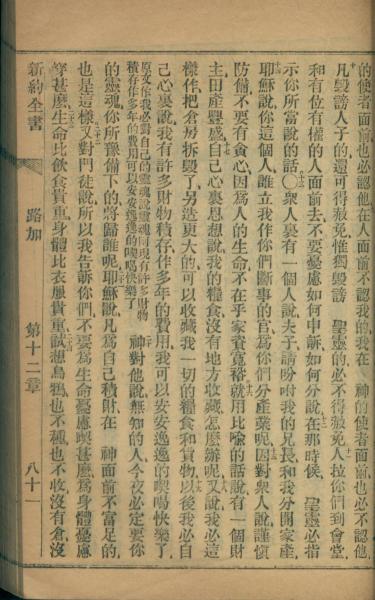 的使者面前也必認他在人面前不認我的我在　神的使者面前也必不認他
凡毀謗人子的還可得赦免惟獨毀謗　聖靈的必不得赦免人拉你們到會堂
和有位有權的人面前去不要憂慮如何申訴如何分說在那時候　聖靈必指
示你所當說的話○衆人裏有一個人說夫子請吩咐我的兄長和我分開家產
耶穌說你這個人誰立我作你們斷事的官爲你們分產業呢因對衆人說謹愼
防備不要有貪心因爲人的生命不在乎家資寬裕就用比喻的話說有一個財
主田產豐盛自己心裏思想說我的糧食沒有地方收藏怎麽辦呢又說我必這
樣作把倉房拆毀了另造更大的可以收藏我一切的糧食和貨物以後我必自
己心裏說我有許多財物積存作多年的費用我可以安安逸逸的喫喝快樂了
原文作我必對自己的靈魂說靈魂阿現有許多財物
積存作多年的費用可以安安逸逸的喫喝快樂了
神對他說無知的人今夜必定要你
的靈魂你所豫備下的將歸誰呢耶穌說凡爲自己積財在　神面前不富足的
也是這樣又對門徒說所以我告訴你們不要爲生命憂慮喫甚麽爲身體憂慮
穿甚麽生命比飲食貴重身體比衣服貴重試想烏鴉也不種也不收沒有倉沒
新約全書
路加
第十二章
八十一